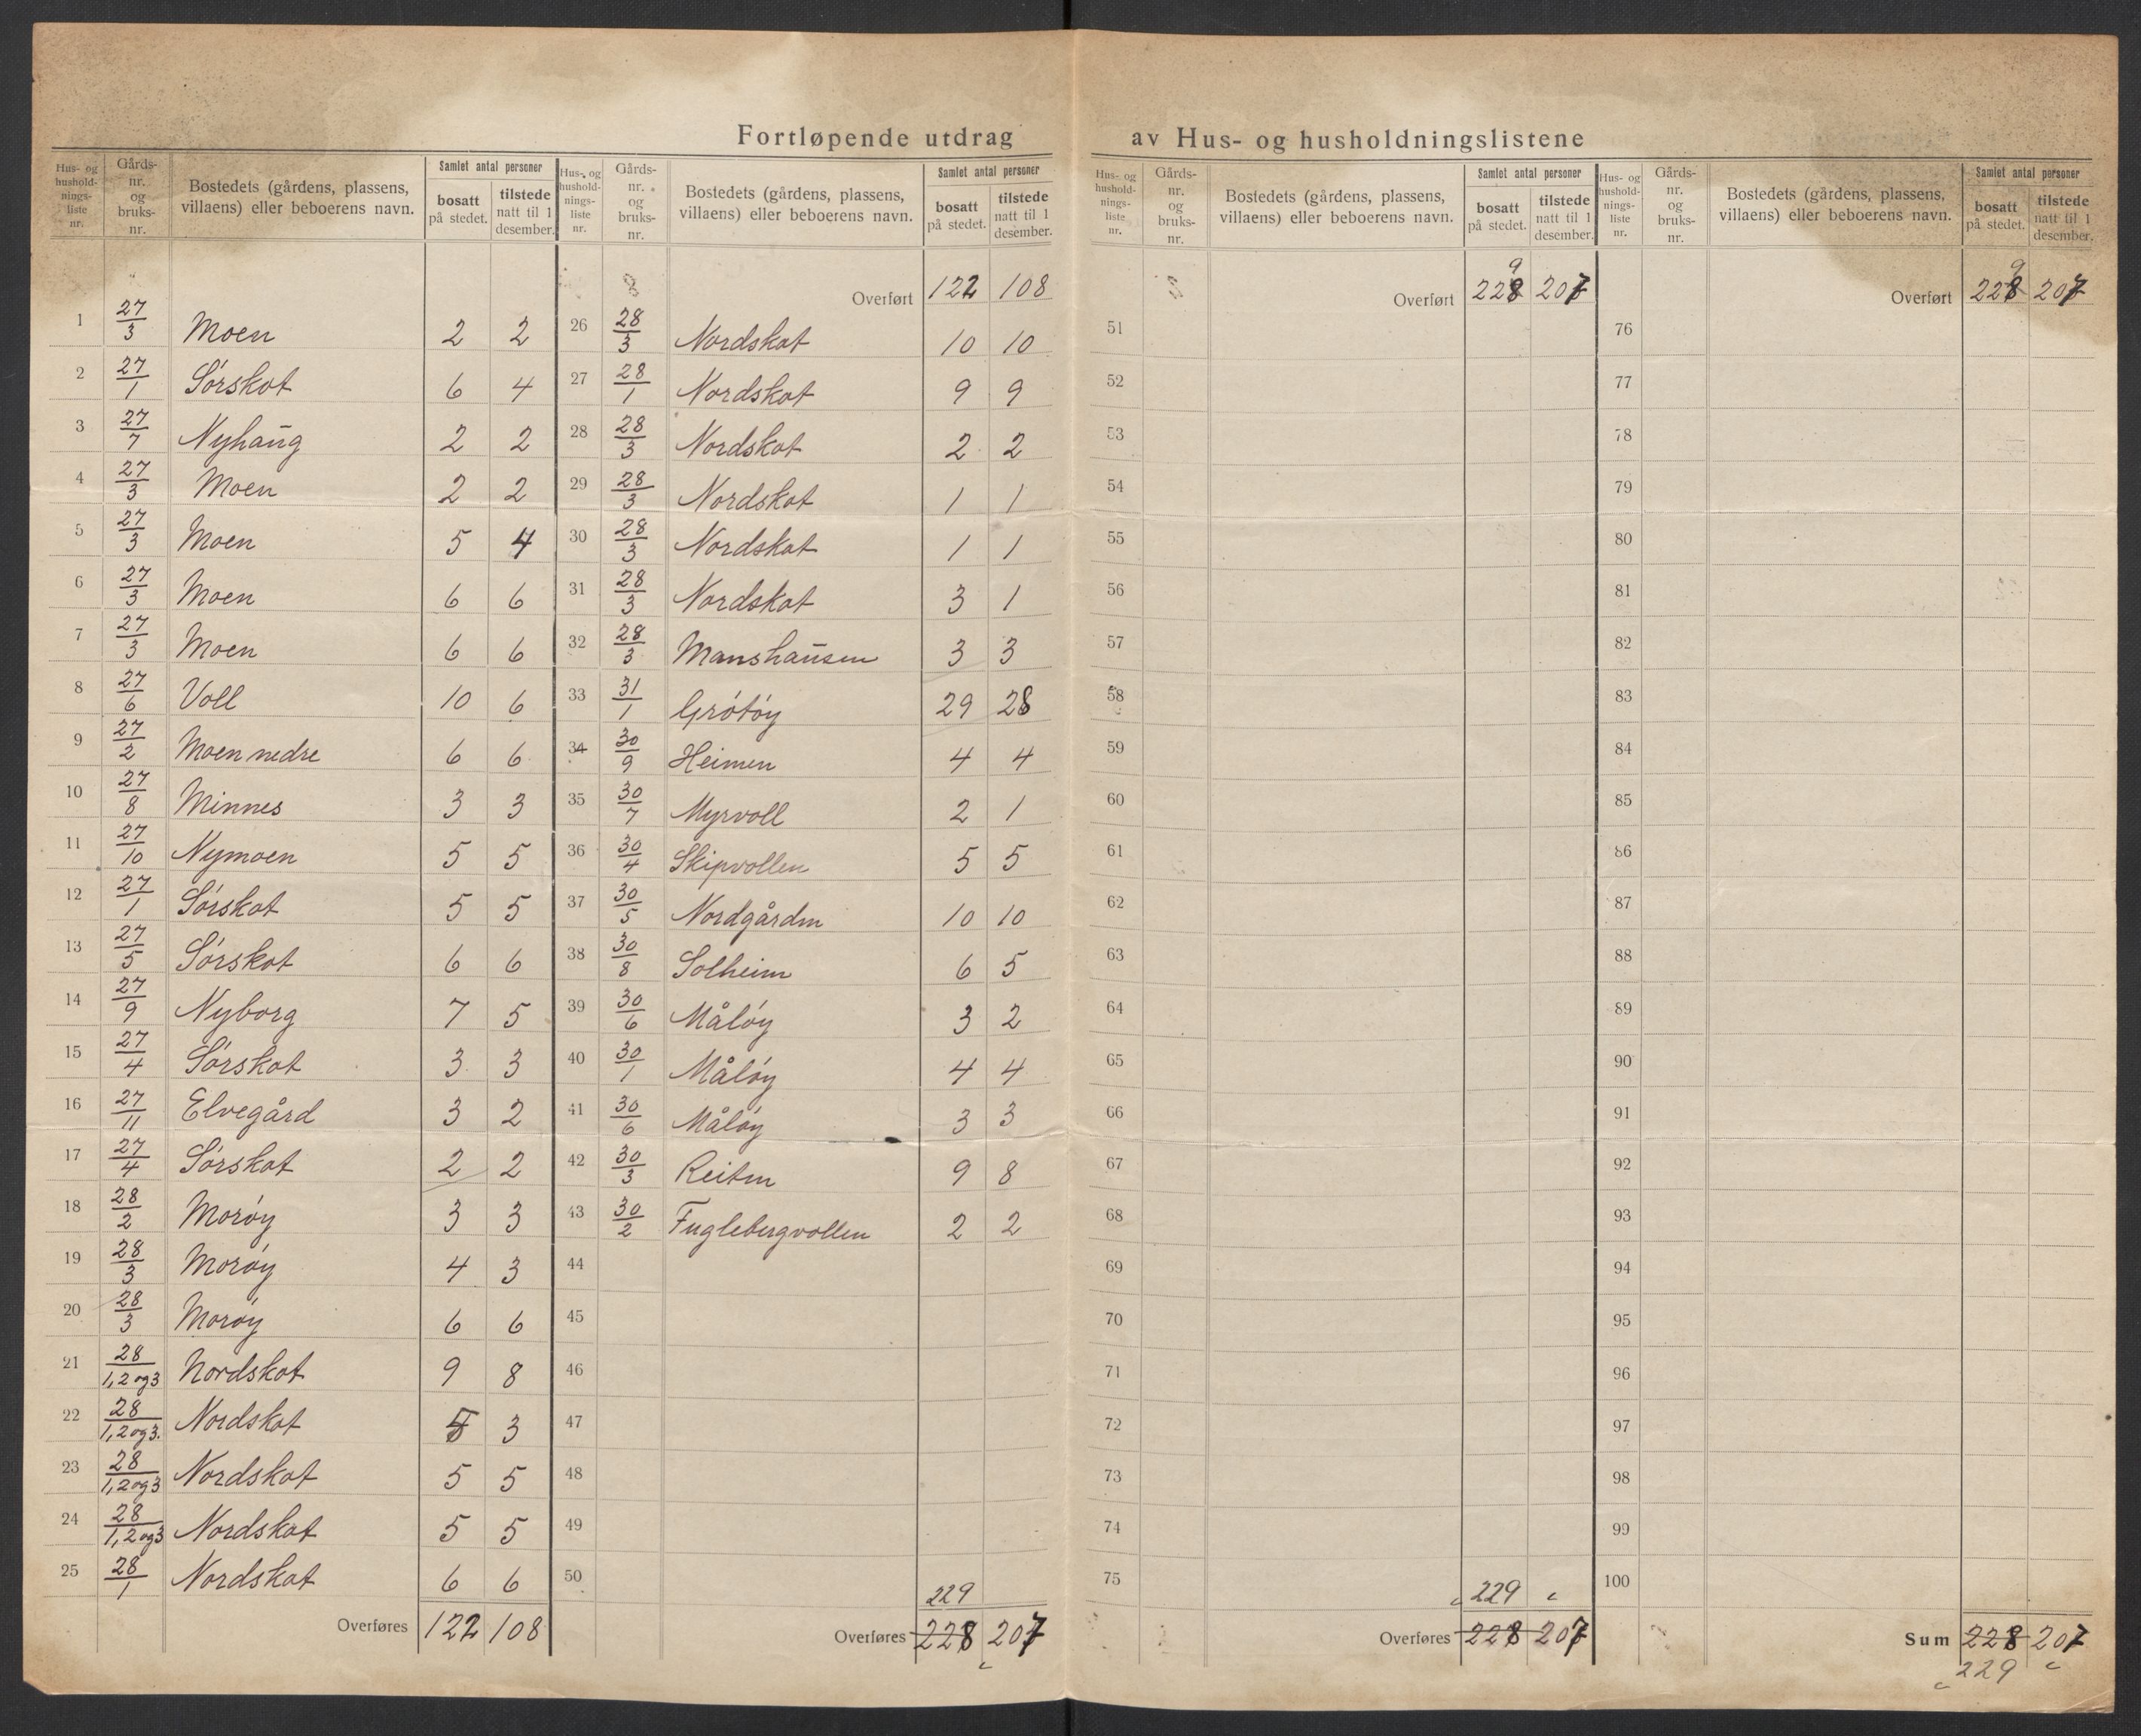 Fortløpende utdrag av Hus- og husholdningslistene
Hus- og hushold-nings-liste nr. Gårds-nr. og bruks-nr. Bostedets (gårdens, plassens, villaens) eller beboerens navn. Samlet antal personer bosatt på stedet. tilstede natt til 1 desember.
1 27/3 Moen 2 2
2 27/1 Sørskot 6 4
3 27/7 Nyhaug 2 2
4 27/3 Moen 2 2
5 27/3 Moen 5 4
6 27/3 Moen 6 6
7 27/3 Moen 6 6
8 27/6 Voll 10 6
9 27/2 Moen nedre 6 6
10 27/8 Minnes 3 3
11 27/10 Nymoen 5 5
12 27/1 Sørskot 5 5
13 27/5 Sørskot 6 6
14 27/9 Nyborg 7 5
15 27/4 Sørskot 3 3
16 27/11 Elvegård 3 2
17 27/4 Sørskot 2 2
18 28/2 Morøy 3 3
19 28/3 Morøy 4 3
20 28/3 Morøy 6 6
21 28/1,2 og 3 Nordskot 9 8
22 28/1,2 og 3. Nordskot 5 3
23 28/1,2 og 3 Nordskot 5 5
24 28/1,2 og 3 Nordskot 5 5
25 28/1 Nordskot 6 6
Overføres 122 108
Hus- og hushold-nings-liste nr. Gårds-nr. og bruks-nr. Bostedets (gårdens, plassens, villaens) eller beboerens navn. Samlet antal personer bosatt på stedet. tilstede natt til 1 desember.
Overført 122 108
26 28/3 Nordskot 10 10
27 28/1 Nordskot 9 9
28 28/3 Nordskot 2 2
29 28/3 Nordskot 1 1
30 28/3 Nordskot 1 1
31 28/3 Nordskot 3 1
32 28/3 Manshausen 3 3
33 31/1 Grøtøy 29 28
34 30/9 Heimen 4 4
35 30/7 Myrvoll 2 1
36 30/4 Skipvollen 5 5
37 30/5 Nordgården 10 10
38 30/8 Solheim 6 5
39 30/6 Måløy 3 2
40 30/1 Måløy 4 4
41 30/6 Måløy 3 3
42 30/3 Reiten 9 8
43 30/2 Fuglebergvollen 2 2
44
45
46
47
48
49
50
229
Overføres 228 207
Hus- og hushold-nings-liste nr. Gårds-nr. og bruks-nr. Bostedets (gårdens, plassens, villaens) eller beboerens navn. Samlet antal personer bosatt på stedet. tilstede natt til 1 desember.
9
Overført 228 207
51
52
53
54
55
56
57
58
59
60
61
62
63
64
65
66
67
68
69
70
71
72
73
74
75
229
Overføres 228 207
Hus- og hushold-nings-liste nr. Gårds-nr. og bruks-nr. Bostedets (gårdens, plassens, villaens) eller beboerens navn. Samlet antal personer bosatt på stedet. tilstede natt til 1 desember.
9
Overført 228 207
76
77
78
79
80
81
82
83
84
85
86
87
88
89
90
91
92
93
94
95
96
97
98
99
100
Sum 228 207
229